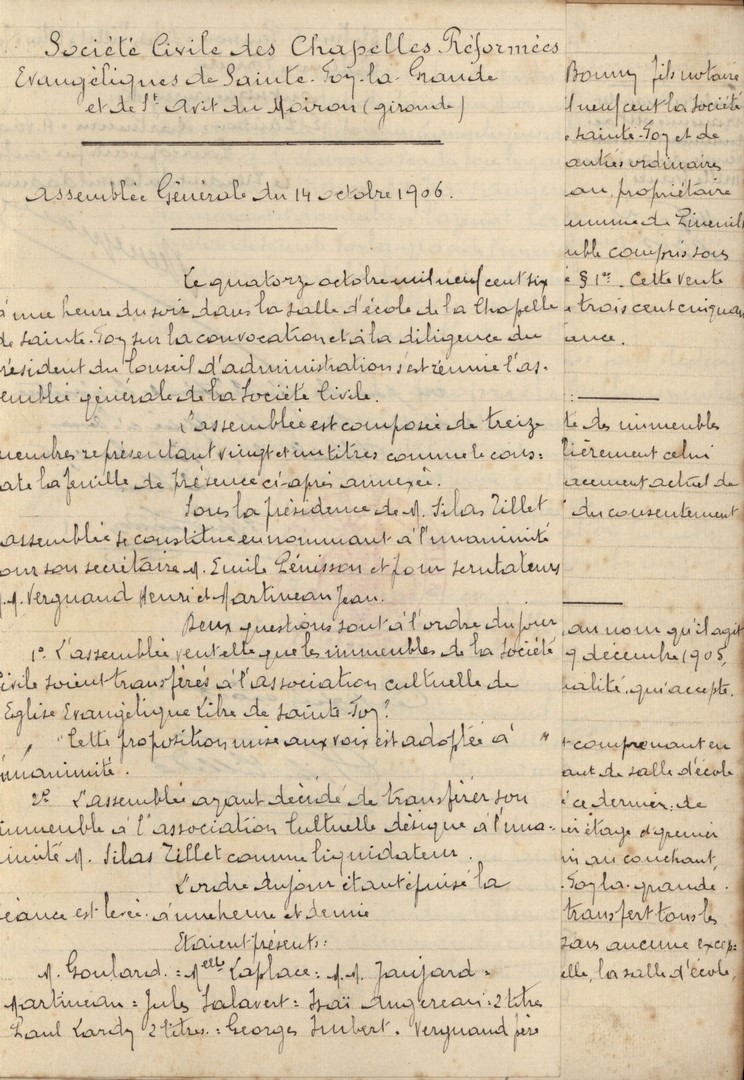 Société Civile des Chapelles Réformées
Evangéliques de Sainte-Foy-la-Grande
et de St Avit du Moiron (gironde)
Assemblée Générale du 14 octobre 1906.
Le quatorze octobre mil neuf cent six
à une heure du soir, dans la salle d'école de la Chapelle
de Sainte-Foy sur la convocation et à la diligence du
résident du Conseil d'administration s'est réunie l'as-
emblée générale de la Société Civile.
L'assemblée est composée de treize
membres représentant vingt et un titres comme le cons=
ate la feuille de présence ci-après annexée.
Sous la présidence de M. Silas Tillet
assemblée se constitue en nommant à l'unanimité
our son secrétaire M. Emile Pénisson et pour scrutateurs
M.M. Vergnaud Henri et Martineau Jean.
Deux questions sont à l'ordre du jour
1º L'assemblée veut elle que les immeubles de la Société
Civile soient transférés à l'association cultuelle de
Eglise Evangélique Libre de Sainte-Foy?
"Cette proposition mise aux voix est adoptée à "
unanimité.
2º L'assemblée ayant décidé de transférer son
immeuble à l'association Cultuelle désigne à l'una-
imité M. Silas Tillet comme liquidateur.
L'ordre du jour étant épuisé la
éance est levée à une heure et demie
Etaient présents:
M. Goulard = Melle Laplace = M.M. Jaujard =
Martineau = Jules Salavert = Isaï Augereau = 2 titres
Paul Lardy 2 titres = Georges Imbert. Vergnaud père
Bonny fils notaire
l neuf cent la société
sainte-Foy et de
antiés ordinaires
an, propriétaire
mme de
uble compris sous
§ 1er. Cette vente
e trois cent cinquan
ance.
te des immeubles
lièrement celui
acement actuel de
du consentement
au nom qu'il agit
9 décembre 1905,
ualité, qui accepte.
t comprenant en
ant de salle d'école
é ce dernier, de
er étage et grenier
is au couchant,
Foy la grande.
transfert tous les
sans aucune excep-
elle, la salle d'école,